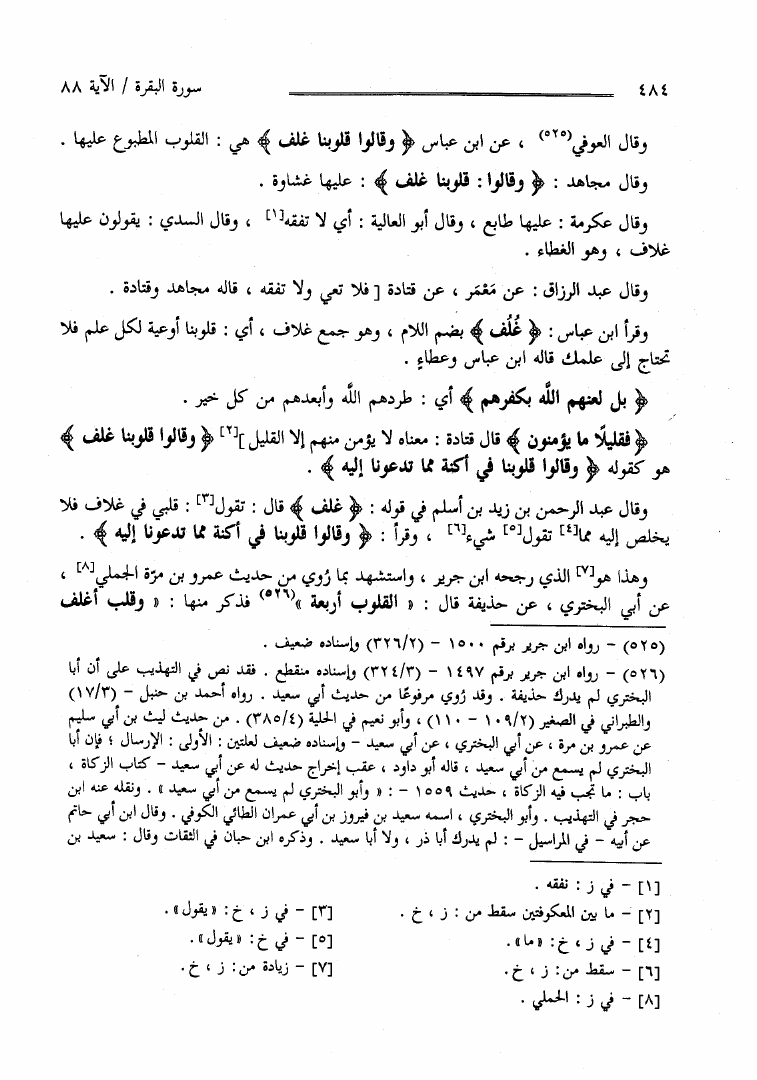 ٤٨٤ سورة البقرة / الآية ٨٨
وقال العوفي(٥٢٥) ، عن ابن عباس ﴿ وقالوا قلوبنا غلف ﴾ هي : القلوب المطبوع عليها .
وقال مجاهد : ﴿ وقالوا : قلوبنا غلف ﴾ : عليها غشاوة .
وقال عكرمة : عليها طابع ، وقال أبو العالية : أي لا تفقه[١] ، وقال السدي : يقولون عليها
غلاف ، وهو الغطاء .
وقال عبد الرزاق : عن مَعْمَر ، عن قتادة [ فلا تعي ولا تفقه ، قاله مجاهد وقتادة .
وقرأ ابن عباس : ﴿ غُلُف ﴾ بضم اللام ، وهو جمع غلاف ، أي : قلوبنا أوعية لكل علم فلا
تحتاج إلى علمك قاله ابن عباس وعطاءٍ .
﴿ بل لعنهم اللَّه بكفرهم ﴾ أي : طردهم اللَّه وأبعدهم من كل خير .
﴿ فقليلًا ما يؤمنون ﴾ قال قتادة : معناه لا يؤمن منهم إلا القليل ][٢] ﴿ وقالوا قلوبنا غلف ﴾
هو كقوله ﴿ وقالوا قلوبنا في أكنة مما تدعونا إليه ﴾ .
وقال عبد الرحمن بن زيد بن أسلم في قوله : ﴿ غلف ﴾ قال : تقول[٣] : قلبي في غلاف فلا
يخلص إليه مما[٤] تقول[٥] شيء[٦] ، وقرأ : ﴿ وقالوا قلوبنا في أكنة مما تدعونا إليه ﴾ .
وهذا هو[٧] الذي رجحه ابن جرير ، واستشهد بما رُوي من حديث عمرو بن مرّة الجملي[٨] ،
عن أبي البختري ، عن حذيفة قال : « القلوب أربعة »(٥٢٦) فذكر منها : « وقلب أغلف
(٥٢٥) – رواه ابن جرير برقم ١٥٠٠ – (٣٢٦/٢) وإسناده ضعيف .
(٥٢٦) – رواه ابن جرير برقم ١٤٩٧ – (٣٢٤/٣) وإسناده منقطع . فقد نص في التهذيب على أن أبا
البختري لم يدرك حذيفة . وقد رُوي مرفوعًا من حديث أبي سعيد . رواه أحمد بن حنبل – (١٧/٣)
والطبراني في الصغير (١٠٩/٢ – ١١٠) ، وأبو نعيم في الحلية (٣٨٥/٤) . من حديث ليث بن أبي سليم
عن عمرو بن مرة ، عن أبي البختري ، عن أبي سعيد – وإسناده ضعيف لعلتين : الأولى : الإرسال ؛ فإن أبا
البختري لم يسمع من أبي سعيد ، قاله أبو داود ، عقب إخراج حديث له عن أبي سعيد – كتاب الزكاة ،
باب : ما تجب فيه الزكاة ، حديث ١٥٥٩ – : « وأبو البختري لم يسمع من أبي سعيد » . ونقله عنه ابن
حجر في التهذيب . وأبو البختري ، اسمه سعيد بن فيروز بن أبي عمران الطائي الكوفي . وقال ابن أبي حاتم
عن أبيه – في المراسيل – : لم يدرك أبا ذر ، ولا أبا سعيد . وذكره ابن حبان في الثقات وقال : سعيد بن
[١] – في ز : نفقه .
[٢] – ما بين المعكوفتين سقط من : ز ، خ . [٣] – في ز ، خ : «يقول» .
[٤] – في ز ، خ : «ما» . [٥] – في خ : «يقول» .
[٦] – سقط من : ز ، خ . [٧] – زيادة من : ز ، خ .
[٨] – في ز : الحملي .